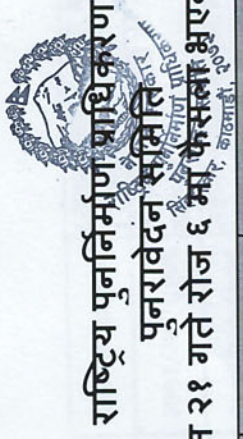 राष्ट्रिय पुनर्निर्माण प्राधिकरण
पुनरावेदन समिति
२१ गते रोज ६ मा फैसला